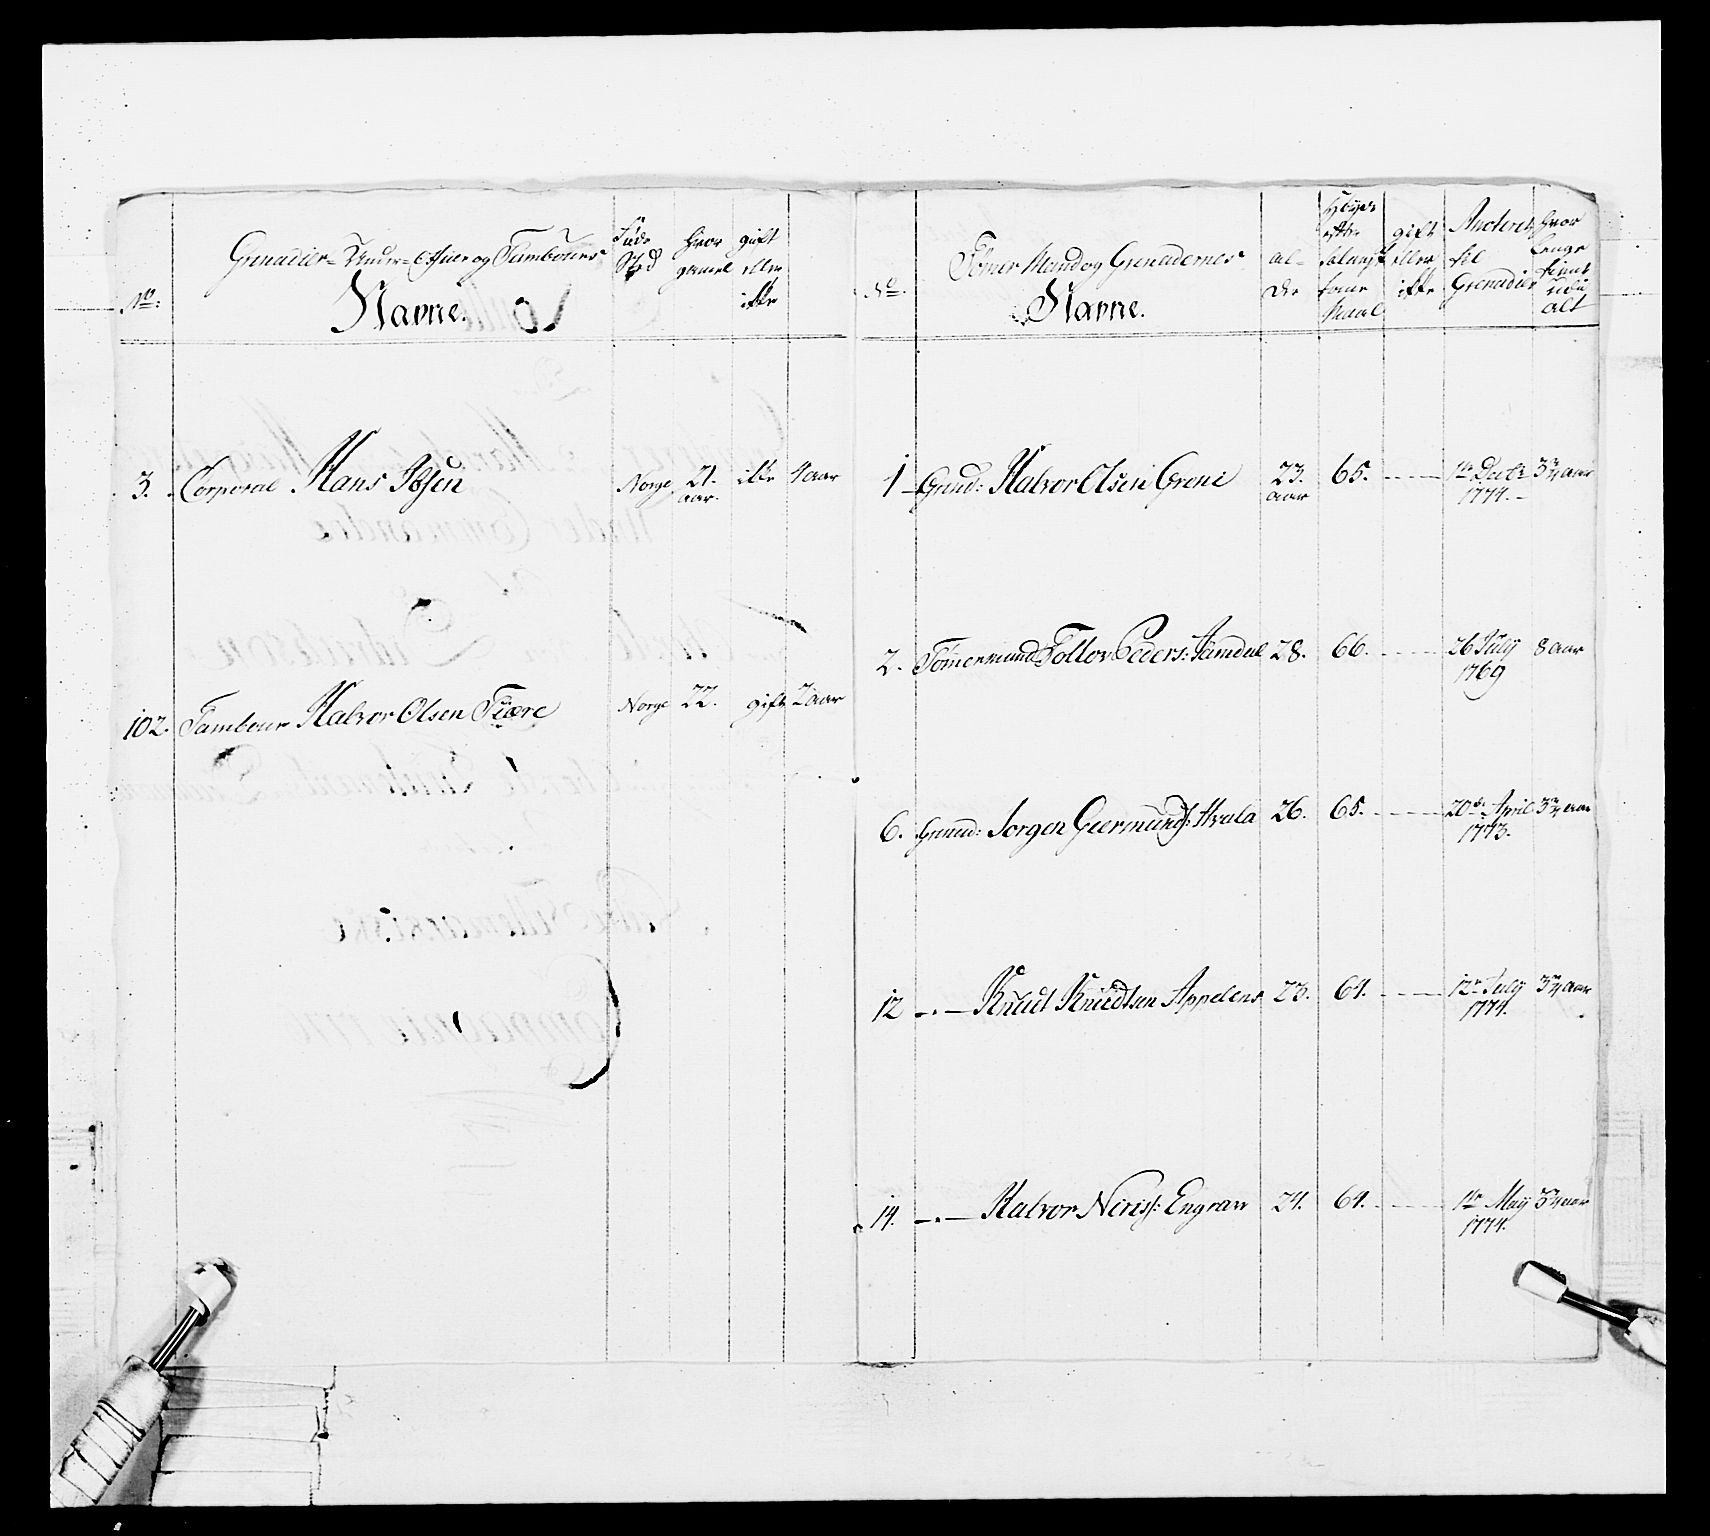 No:
Grenadier-Under-Officer og Tambours
Navne.
Føde Sted
hvor gamel
gift eller ikke
3. Corporal Hans Ibsen Norge 21. aar. ikke 4 aar
102. Tambour Halvor Olsen Norge 22. gift 2 aar
No.
Tømer Mand og Grenadernes
Navne.
al-der
Høyde efter Maal
gift eller ikke
til Grenadier
hvor lenge tient udi alt
1 Grend: Halvor Olsen Greni 23. aar 65. 1te 1774. 3 aar
2. Tømermand Tollov Peders: Aamdal 28. 66. 26 July 1769 8 aar
6. Grenad: Jorgen Giermunds: Hvala 26. 65. 20de April 1773. 3 aar
12 Knud Knudtsen Appelens 23. 64. 12te July 1774. 3 aar
14. Halvor Neris: Engrav 24. 64. 1te May 1774. 3 aar